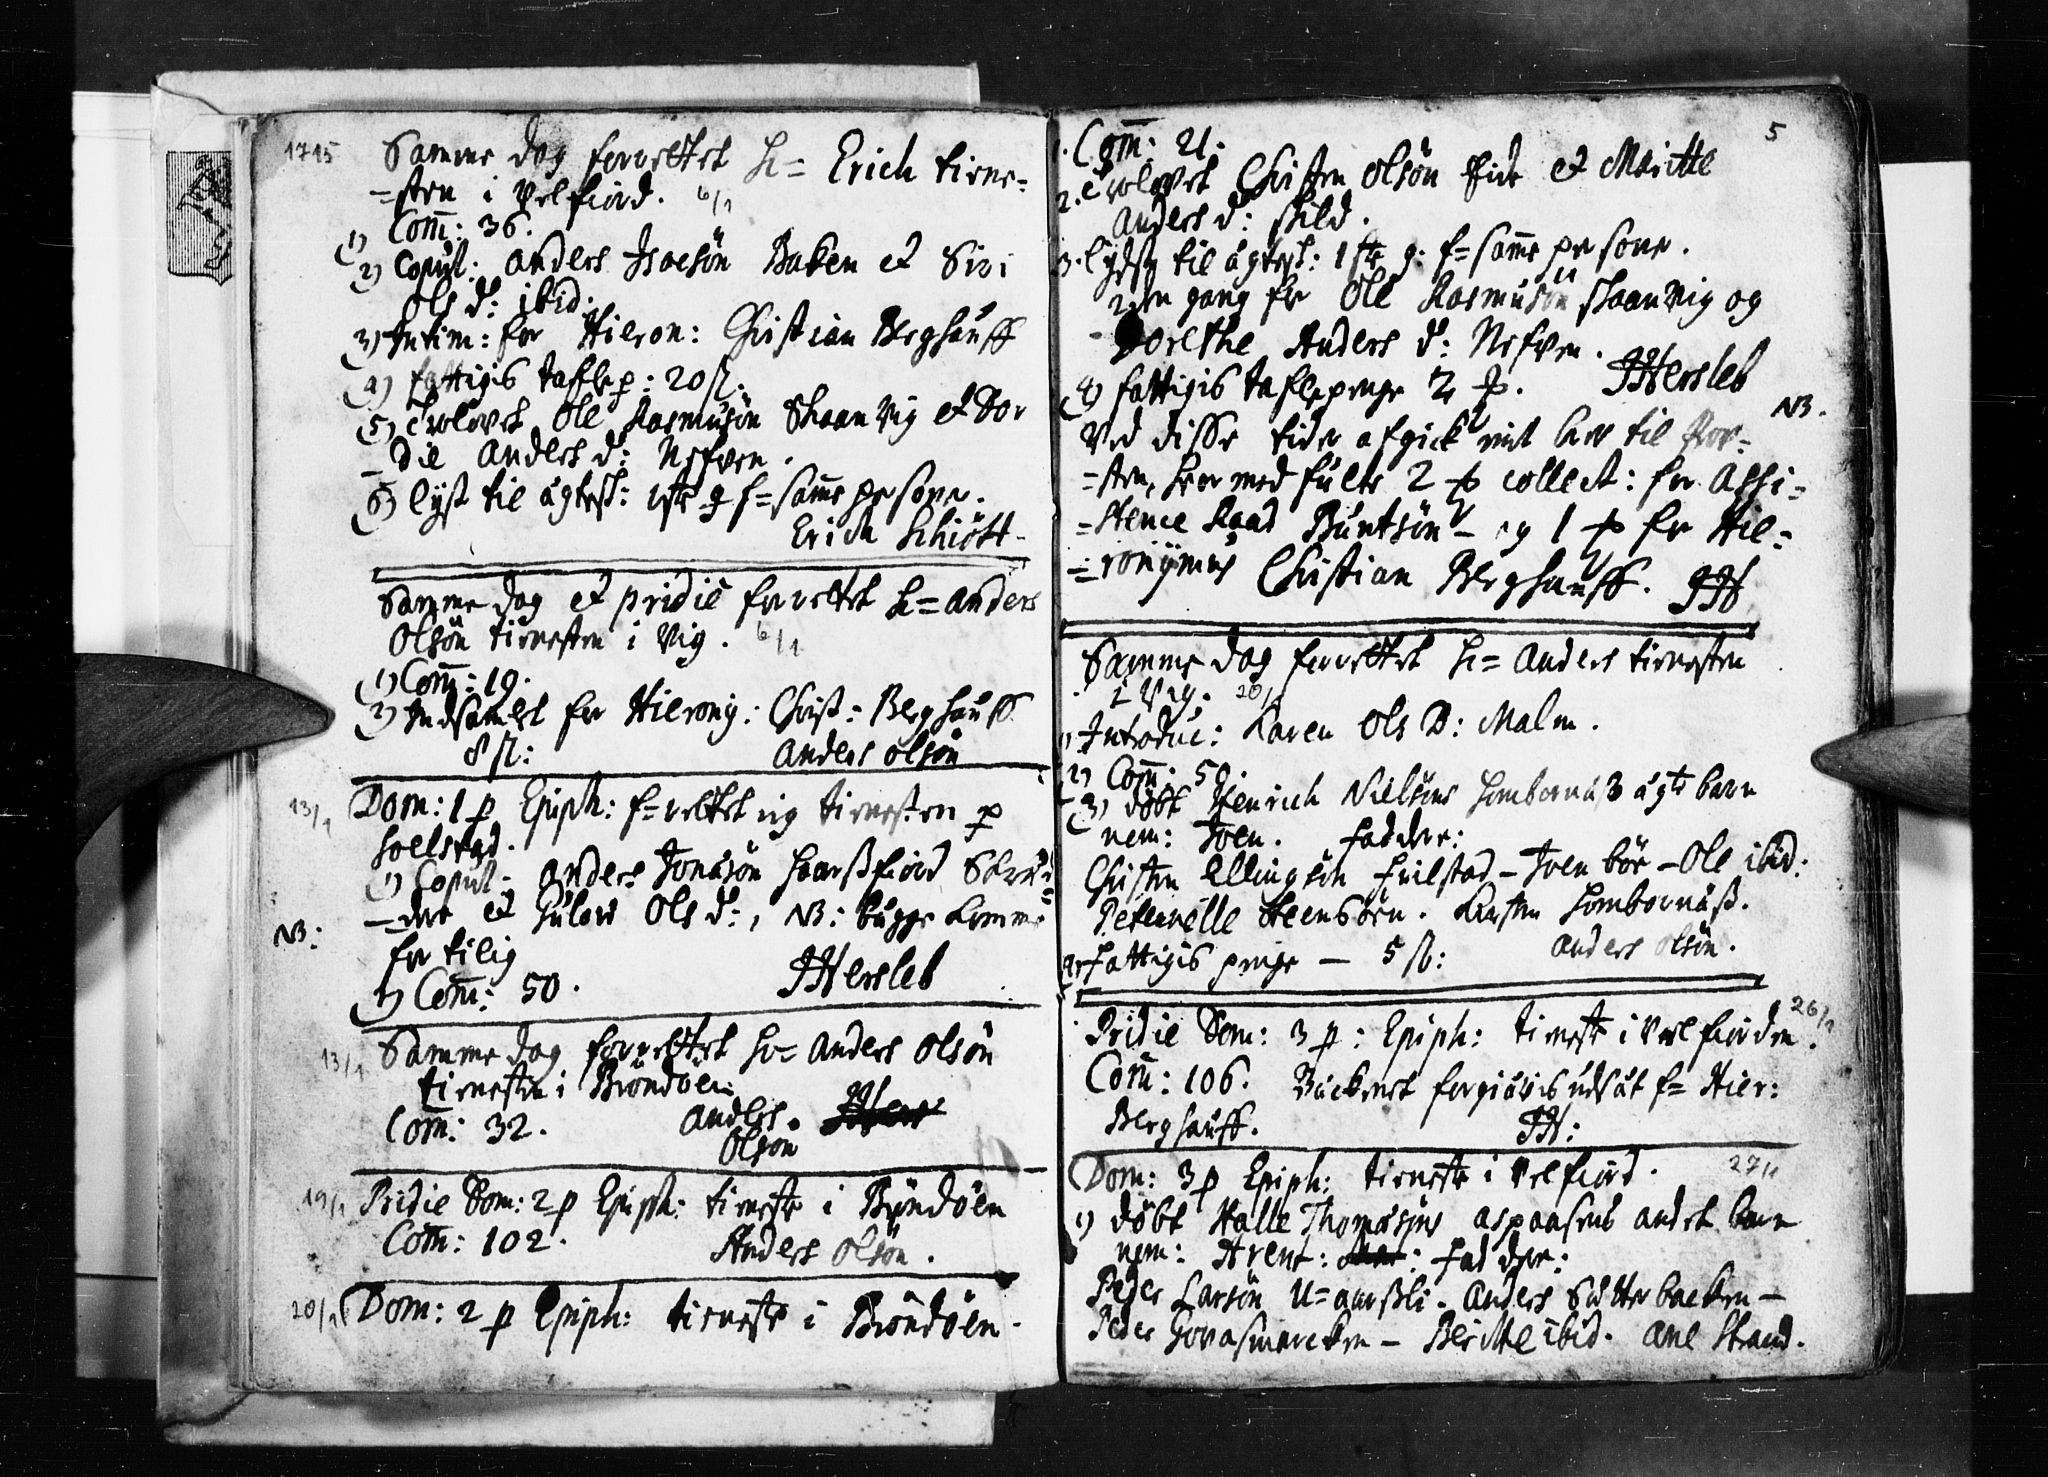 1715
Samme dag forrettet H= Erich tiene-
-sten i Velfiord. 6/1
1) Com̄: 36.
2) Copul: Anders Isacsön Baken et Siri
Ols d: ibid.
3) Intim: for Hieron: Christian Berghauff
4) fattigis taflep: 20 ſl.
5) Trolovet Ole Rasmusön Skaanvig et Dor
-die Anders d: Nefven.
6) lyst til ägtesk: 1ste g f= samme persone.
Erich Schiött
Samme dag et pridie forrettet H= Anders
Olsön tienesten i Vig. 6/1
1) Com̄: 19.
2) Indsamlet for Hierony: Christ: Berghauff
8 ſl: Anders Olsön
13/1 Dom: 1 p Epiph: f=rettet ieg tienesten p
Solstad.
1) Copul: Anders Jonasön
et Gulow Ols d:, NB: bugge komme
NB:
for tilig
2) Com̄: 50. JHersleb
13/1 Samme dag forrettet H= Anders Olsön
tienesten i Bröndöen
Com̄: 32. Anders
Olsön
19/1 Pridie Dom: 2 p Epiph: tieneste i Bröndöen
Com̄: 102. Anders Olsön.
20/1 Dom: 2 p Epiph: tieneste i Bröndöen.
5
1. Com̄: 21.
2. Trolovet Christen Olsön Tilde et Maritte
Anders d: Skild.
3. lydst til ägtesk: 1ste g: f= samme persone.
2den gang for Ole Rasmusön Skaanvig og
Dorethe Anders d: Nefven.
4) fattigis taflepenge 2 JHersleb
NB.
Ved disse tider afgick mit brev til Pro-
-sten, hvormed fulte 2 collect: for Assi-
-stence Raad Buntsön - og 1 for Hie-
-ronÿmus Christian Berghauff. JH
Samme dag forrettet H= Anders tienesten
i Vig. 20/1
1) Introduc: Karen Ols D: Malm.
2) Com̄: 5
3) döbt Henrich Nielsöns Hombornäs ägte barn
nem: Joen. Faddere:
Christen Ellingsön Tilstad - Joen böe - Ole ibid:
Peternelle Steensöen. Kirsten Hombornäs.
4) Fattigis penge - 5 ſl: Anders Olsön.
Pridie Dom: 3 p: Epiph: tieneste i Velfiorden. 26/1
Com̄: 106. Bäckenet forgiäves udsat f= Hier:
Berghauff. JH:
Dom: 3 p Epiph: tieneste i Velfiord. 27/1
1) döbt Halle Thomäsöns andet barn
nem: Arent: Faddere:
Peder Larsön Anders Sätterbacken -
Peder - Beritte ibid. Ane Strand.